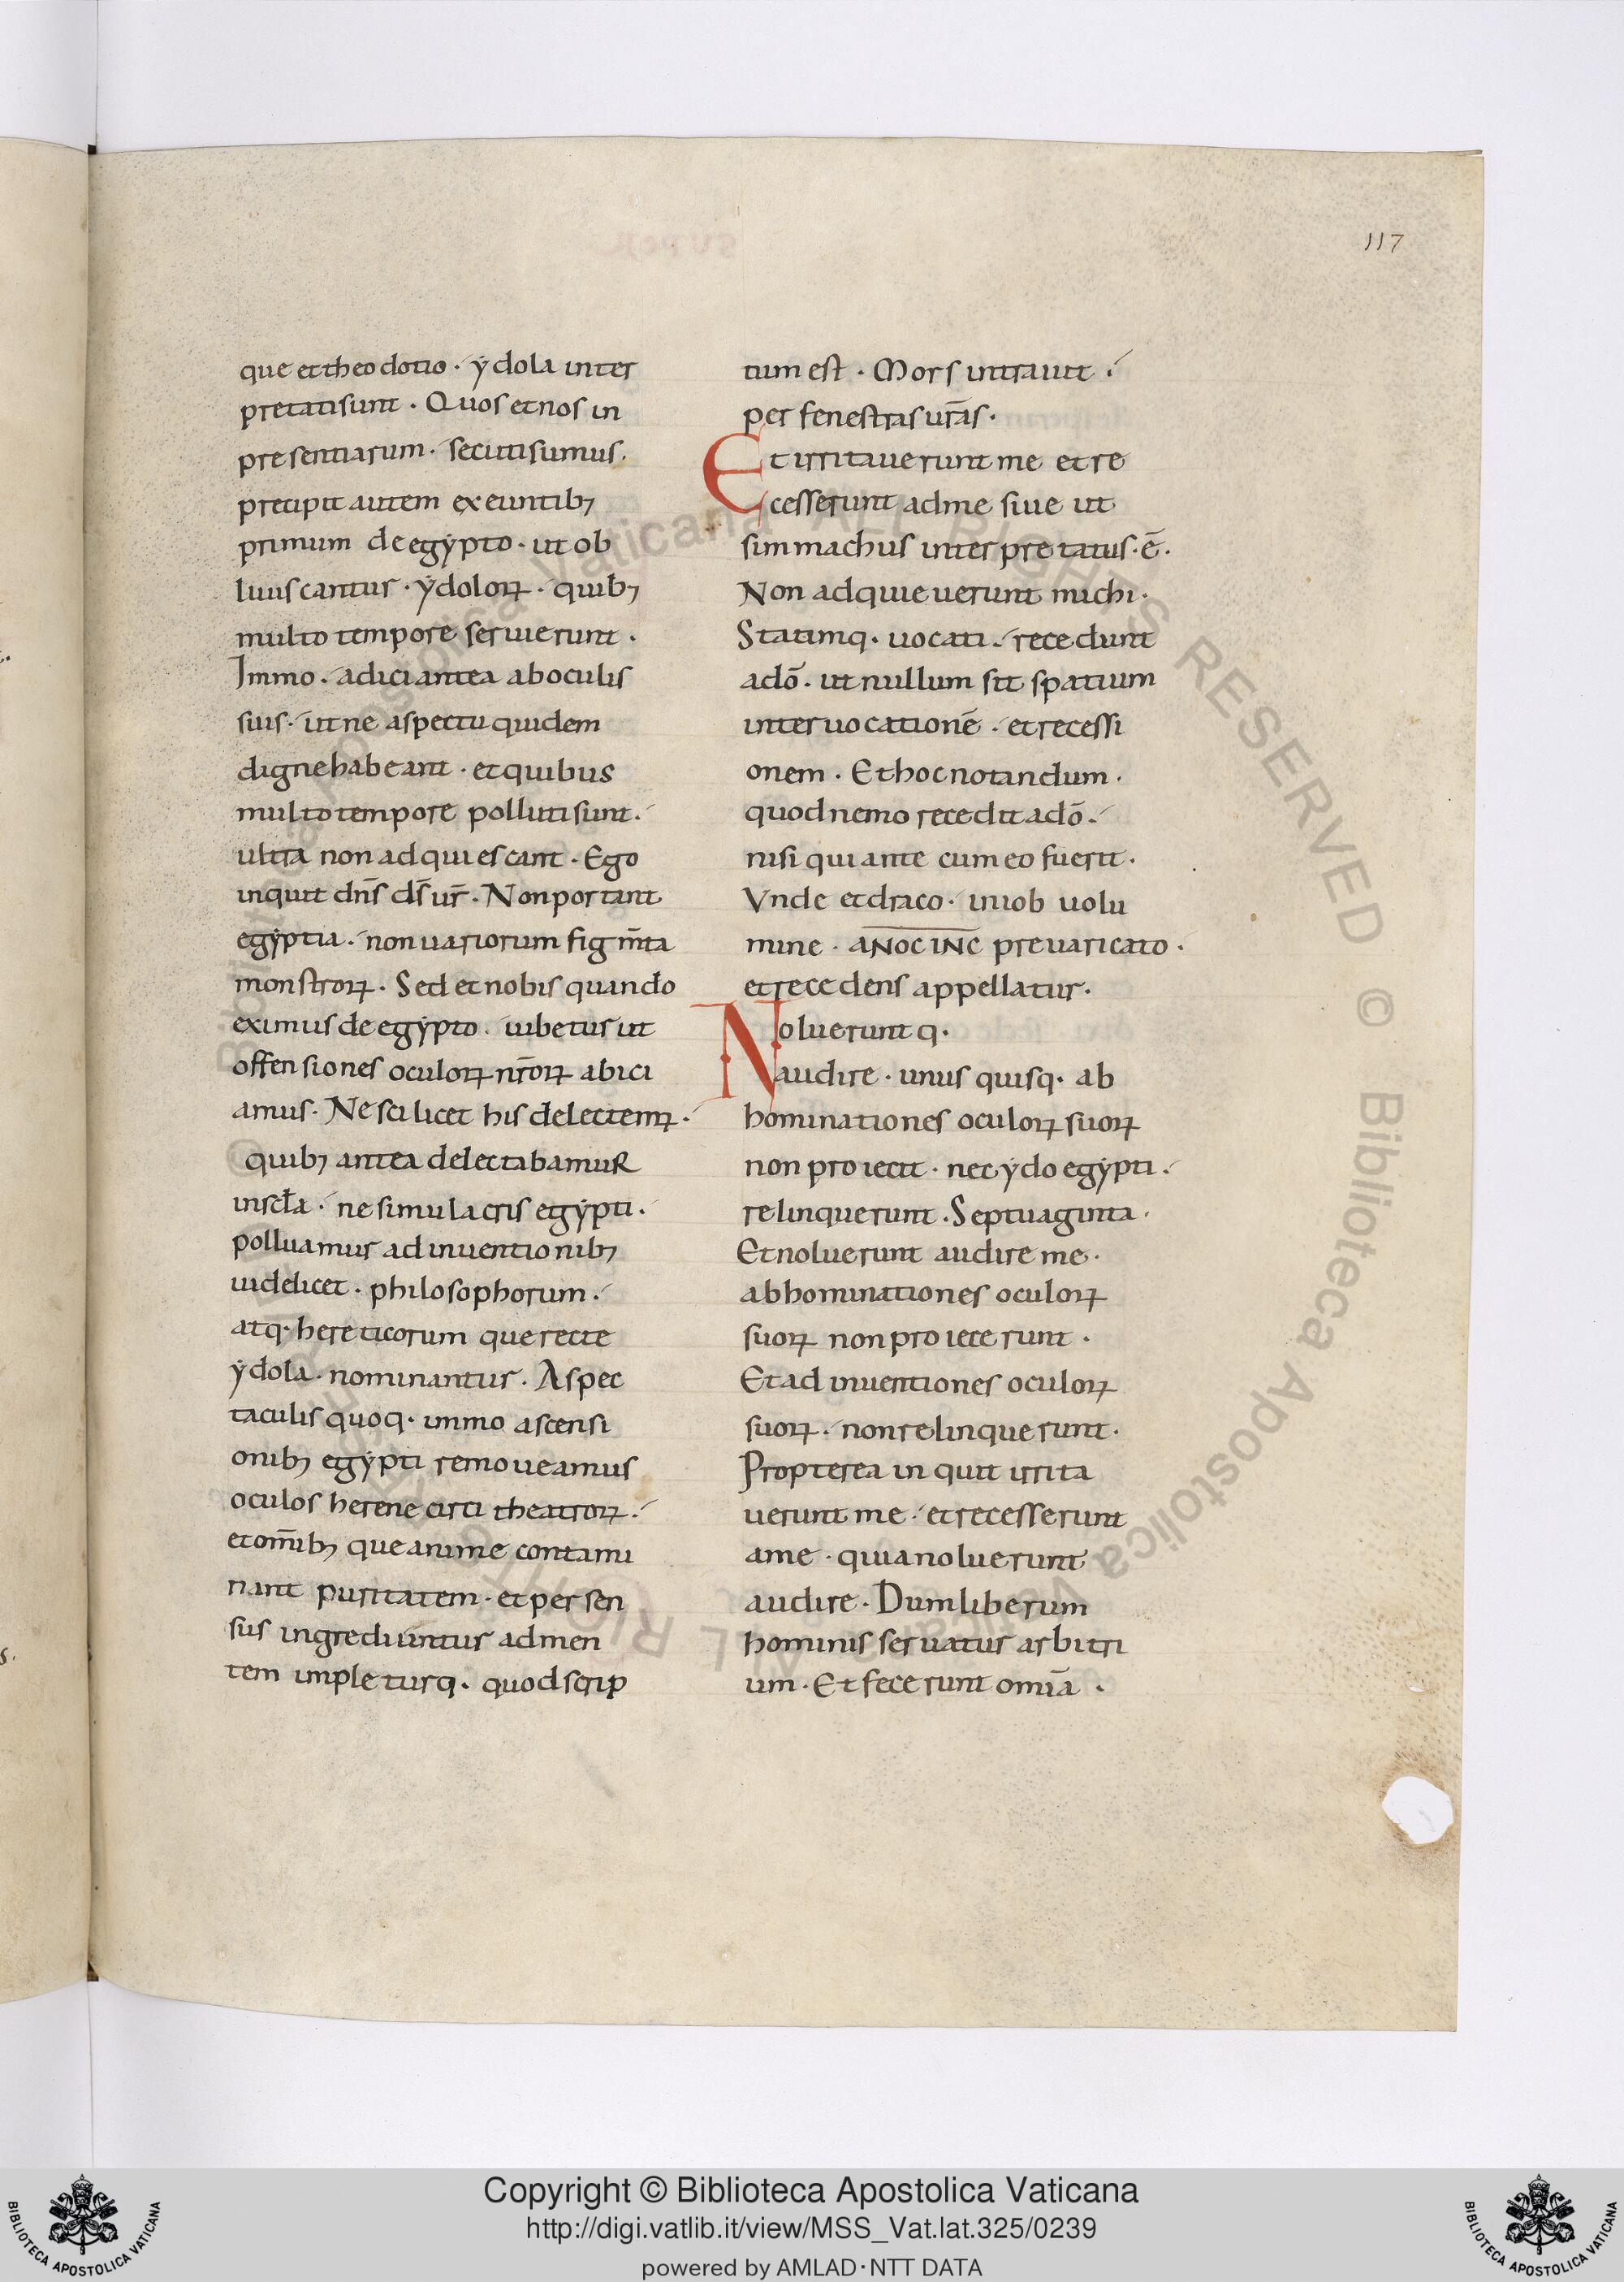 117
que et theodotio · ẏdola inter
pretati sunt · Quos et nos in
presentiarum · secuti sumus.
precipit autem exeuntibꝫ
primum de egẏpto · ut ob
liuiscantur · ẏdoloꝝ · quibꝫ
multo tempore seruierunt ·
Immo · adici antea ab oculis
suis · ut ne aspectu quidem
digne habeant · et quibus
multo tempore polluti sunt ·
ultra non adquiescant · Ego
inquit dn̄s ds̄ ur̄ · Non portant
egẏptia · non uariorum figm̄ta
monstroꝝ · Sed et nobis quando
eximus de egẏpto · iubetur ut
offensiones oculoꝝ nr̄oꝝ abici
amus · Ne scilicet his delectemꝝ ·
quibꝫ antea delectabamuR
in sctła · ne simulacris egẏpti ·
polluamur adinuentionibꝫ
uidelicet · philosophorum ·
atq· hereticorum que recte
ẏdola · nominantur · A spec
taculis quoq· immo ascensi
onibꝫ egẏpti remoueamus
oculos herene circi theatroꝝ ·
et om̄ibꝫ que anime contami
nant puritatem · et per sen
sus ingrediuntur ad men
tem impleturq· quod scrip
tum est · Mors intrauit ·
per fenestras ur̄as ·
Et irritauerunt me et re
cesserunt ad me siue ut
simmachus interpretatus · ē ·
Non adquieuerunt michi ·
Statimq· uocati · recedunt
a dō · ut nullum sit spatium
inter uocationē · et recessi
onem · Et hoc notandum ·
quod nemo recedit a dō ·
nisi qui ante cum eo fuerit ·
Vnde et draco · in iob uolu
mine · ANOC INC preuaricato ·
et recedens appellatur ·
Noluerunt q·
audire · unusquisq· ab
hominationes oculoꝝ suoꝝ
non proiecit · nec ẏdo egẏpti ·
relinquerunt · Septuaginta ·
Et noluerunt audire me ·
abhominationes oculoꝝ
suoꝝ non proiecerunt ·
Et adinuentiones oculoꝝ
suoꝝ · non relinquerunt ·
Propterea inquit irrita
uerunt me · et recesserunt
a me · quia noluerunt
audire · Dum liberum
hominis seruatur arbitri
um · Et fecerunt omīa ·
Copyright © Biblioteca Apostolica Vaticana
http://digi.vatlib.it/view/MSS_Vat.lat.325/0239
powered by AMLAD·NTT DATA
BIBLIOTECA APOSTOLICA VATICANA
BIBLIOTECA APOSTOLICA VATICANA